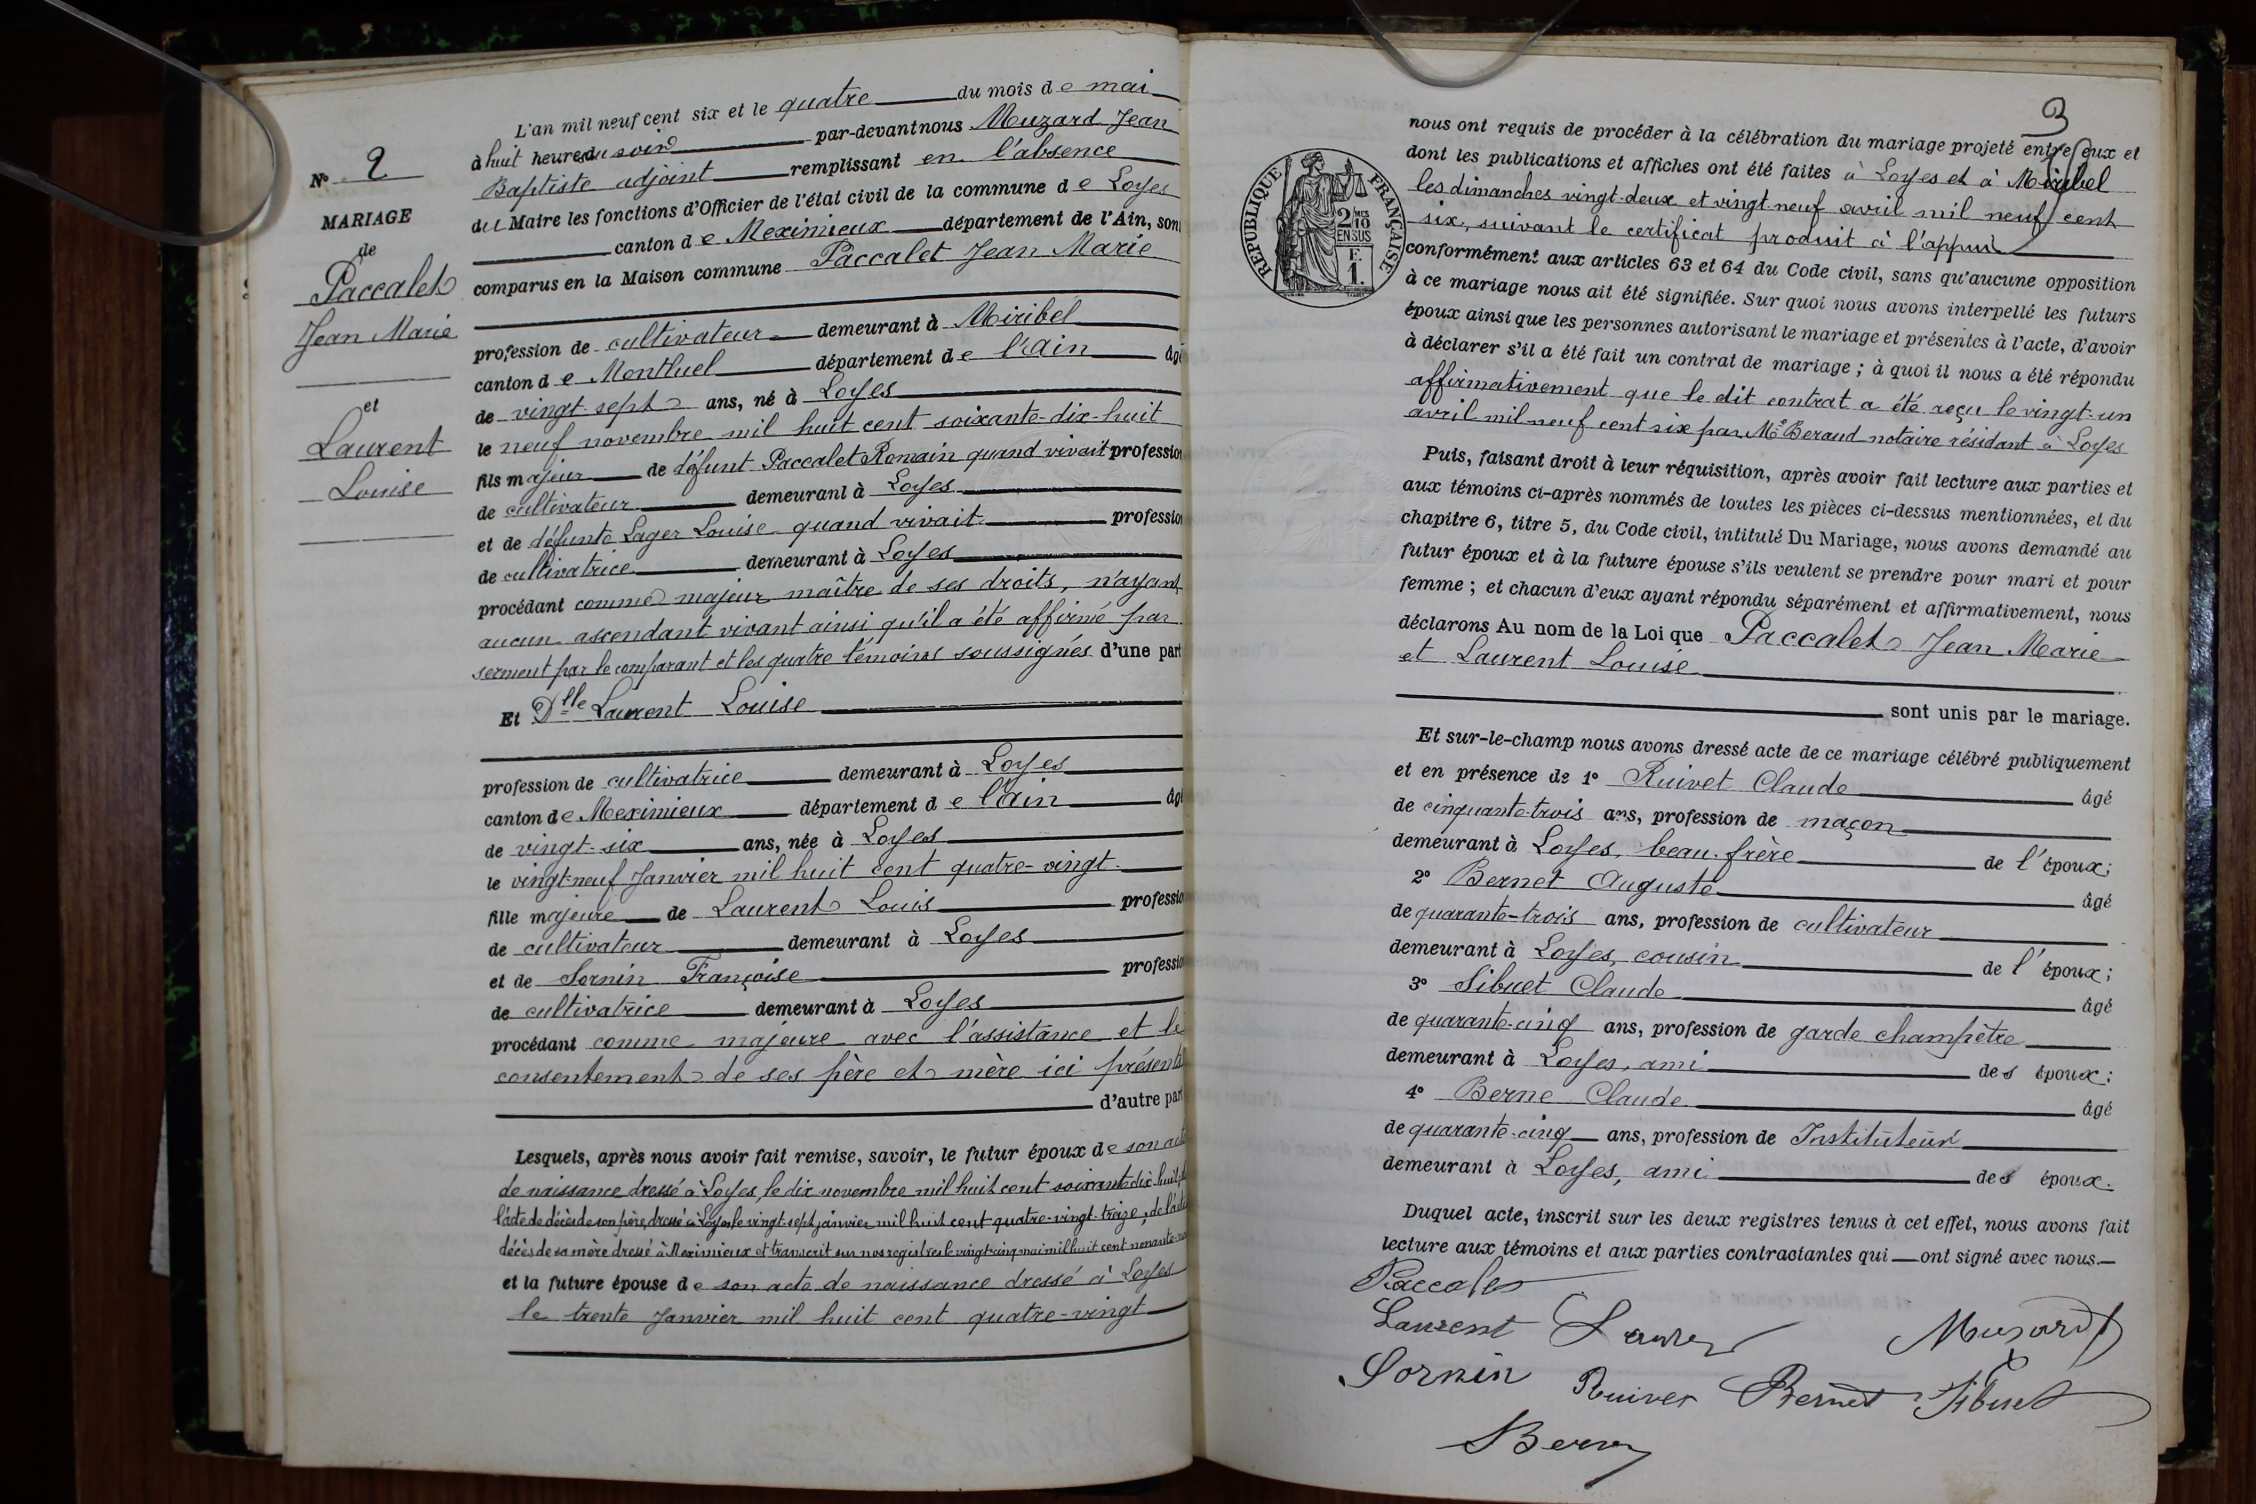 N° 2
MARIAGE
de
Paccalet
Jean Marie
et
Laurent
Louise
L'an mil neuf cent six et le quatre du mois de mai
à huit heures du soir par-devant nous Muzard Jean
Baptiste adjoint remplissant en l'absence
du Maire les fonctions d'Officier de l'état civil de la commune de Loyes
canton de Meximieux département de l'Ain, son
comparus en la Maison commune Paccalet Jean Marie
profession de cultivateur demeurant à Miribel
canton de Montluel département de l'Ain âgé
de vingt-sept ans, né à Loyes
le neuf novembre mil huit cent soixante-dix-huit
fils majeur de défunt Paccalet Romain quand vivait profession
de cultivateur demeurant à Loyes
et de défunte Lager Louise quand vivait profession
de cultivatrice demeurant à Loyes
procédant comme majeur maître de ses droits, n'ayant
aucun ascendant vivant ainsi qu'il a été affirmé par
serment par le comparant et les quatre témoins soussignés d'une part
Et Dlle Laurent Louise
profession de cultivatrice demeurant à Loyes
canton de Meximieux département de l'Ain âgé
de vingt-six ans, née à Loyes
le vingt-neuf Janvier mil huit cent quatre-vingt
fille majeure de Laurent Louis profession
de cultivateur demeurant à Loyes
et de Sornin Françoise profession
de cultivatrice demeurant à Loyes
procédant comme majeure avec l'assistance et le
consentement de ses père et mère ici présents
d'autre part
Lesquels, après nous avoir fait remise, savoir, le futur époux de son acte
de naissance dressé à Loyes, le dix novembre mil huit cent soixante dix-huit,
l'acte de décès de son père, dressé à Loyes le vingt-sept janvier mil huit cent quatre-vingt-treize, de l'acte
décès de sa mère dressé à Meximieux et transcrit sur nos registres le vingt-cinq mai mil huit cent nonante
et la future épouse de son acte de naissance dressé à Loyes
le trente Janvier mil huit cent quatre-vingt
3
RÉPUBLIQUE FRANÇAISE
2/10
EN SUS
F.
1.
nous ont requis de procéder à la célébration du mariage projeté entre eux et
dont les publications et affiches ont été faites à Loyes et à Miribel
les dimanches vingt-deux et vingt neuf avril mil neuf cent
six, suivant le certificat produit à l'appui
conformément aux articles 63 et 64 du Code civil, sans qu'aucune opposition
à ce mariage nous ait été signifiée. Sur quoi nous avons interpellé les futurs
époux ainsi que les personnes autorisant le mariage et présentes à l'acte, d'avoir
à déclarer s'il a été fait un contrat de mariage ; à quoi il nous a été répondu
affirmativement que le dit contrat a été reçu le vingt-un
avril mil neuf cent six par Me Beraud notaire résidant à Loyes
Puis, faisant droit à leur réquisition, après avoir fait lecture aux parties et
aux témoins ci-après nommés de toutes les pièces ci-dessus mentionnées, et du
chapitre 6, titre 5, du Code civil, intitulé Du Mariage, nous avons demandé au
futur époux et à la future épouse s'ils veulent se prendre pour mari et pour
femme ; et chacun d'eux ayant répondu séparément et affirmativement, nous
déclarons Au nom de la Loi que Paccalet Jean Marie
et Laurent Louise
sont unis par le mariage.
Et sur-le-champ nous avons dressé acte de ce mariage célébré publiquement
et en présence de 1° Ruivet Claude âgé
de cinquante-trois ans, profession de maçon
demeurant à Loyes, beau-frère de l'époux;
2° Bernet Auguste âgé
de quarante-trois ans, profession de cultivateur
demeurant à Loyes, cousin de l'époux;
3° Sibuet Claude âgé
de quarante-cinq ans, profession de garde champêtre
demeurant à Loyes, ami des époux;
4° Berne Claude âgé
de quarante-cinq ans, profession de Instituteur
demeurant à Loyes, ami des époux.
Duquel acte, inscrit sur les deux registres tenus à cet effet, nous avons fait
lecture aux témoins et aux parties contractantes qui ont signé avec nous.
Paccalet
Laurent Laurent Muzard
Sornin Ruivet Bernet Sibuet
Berne